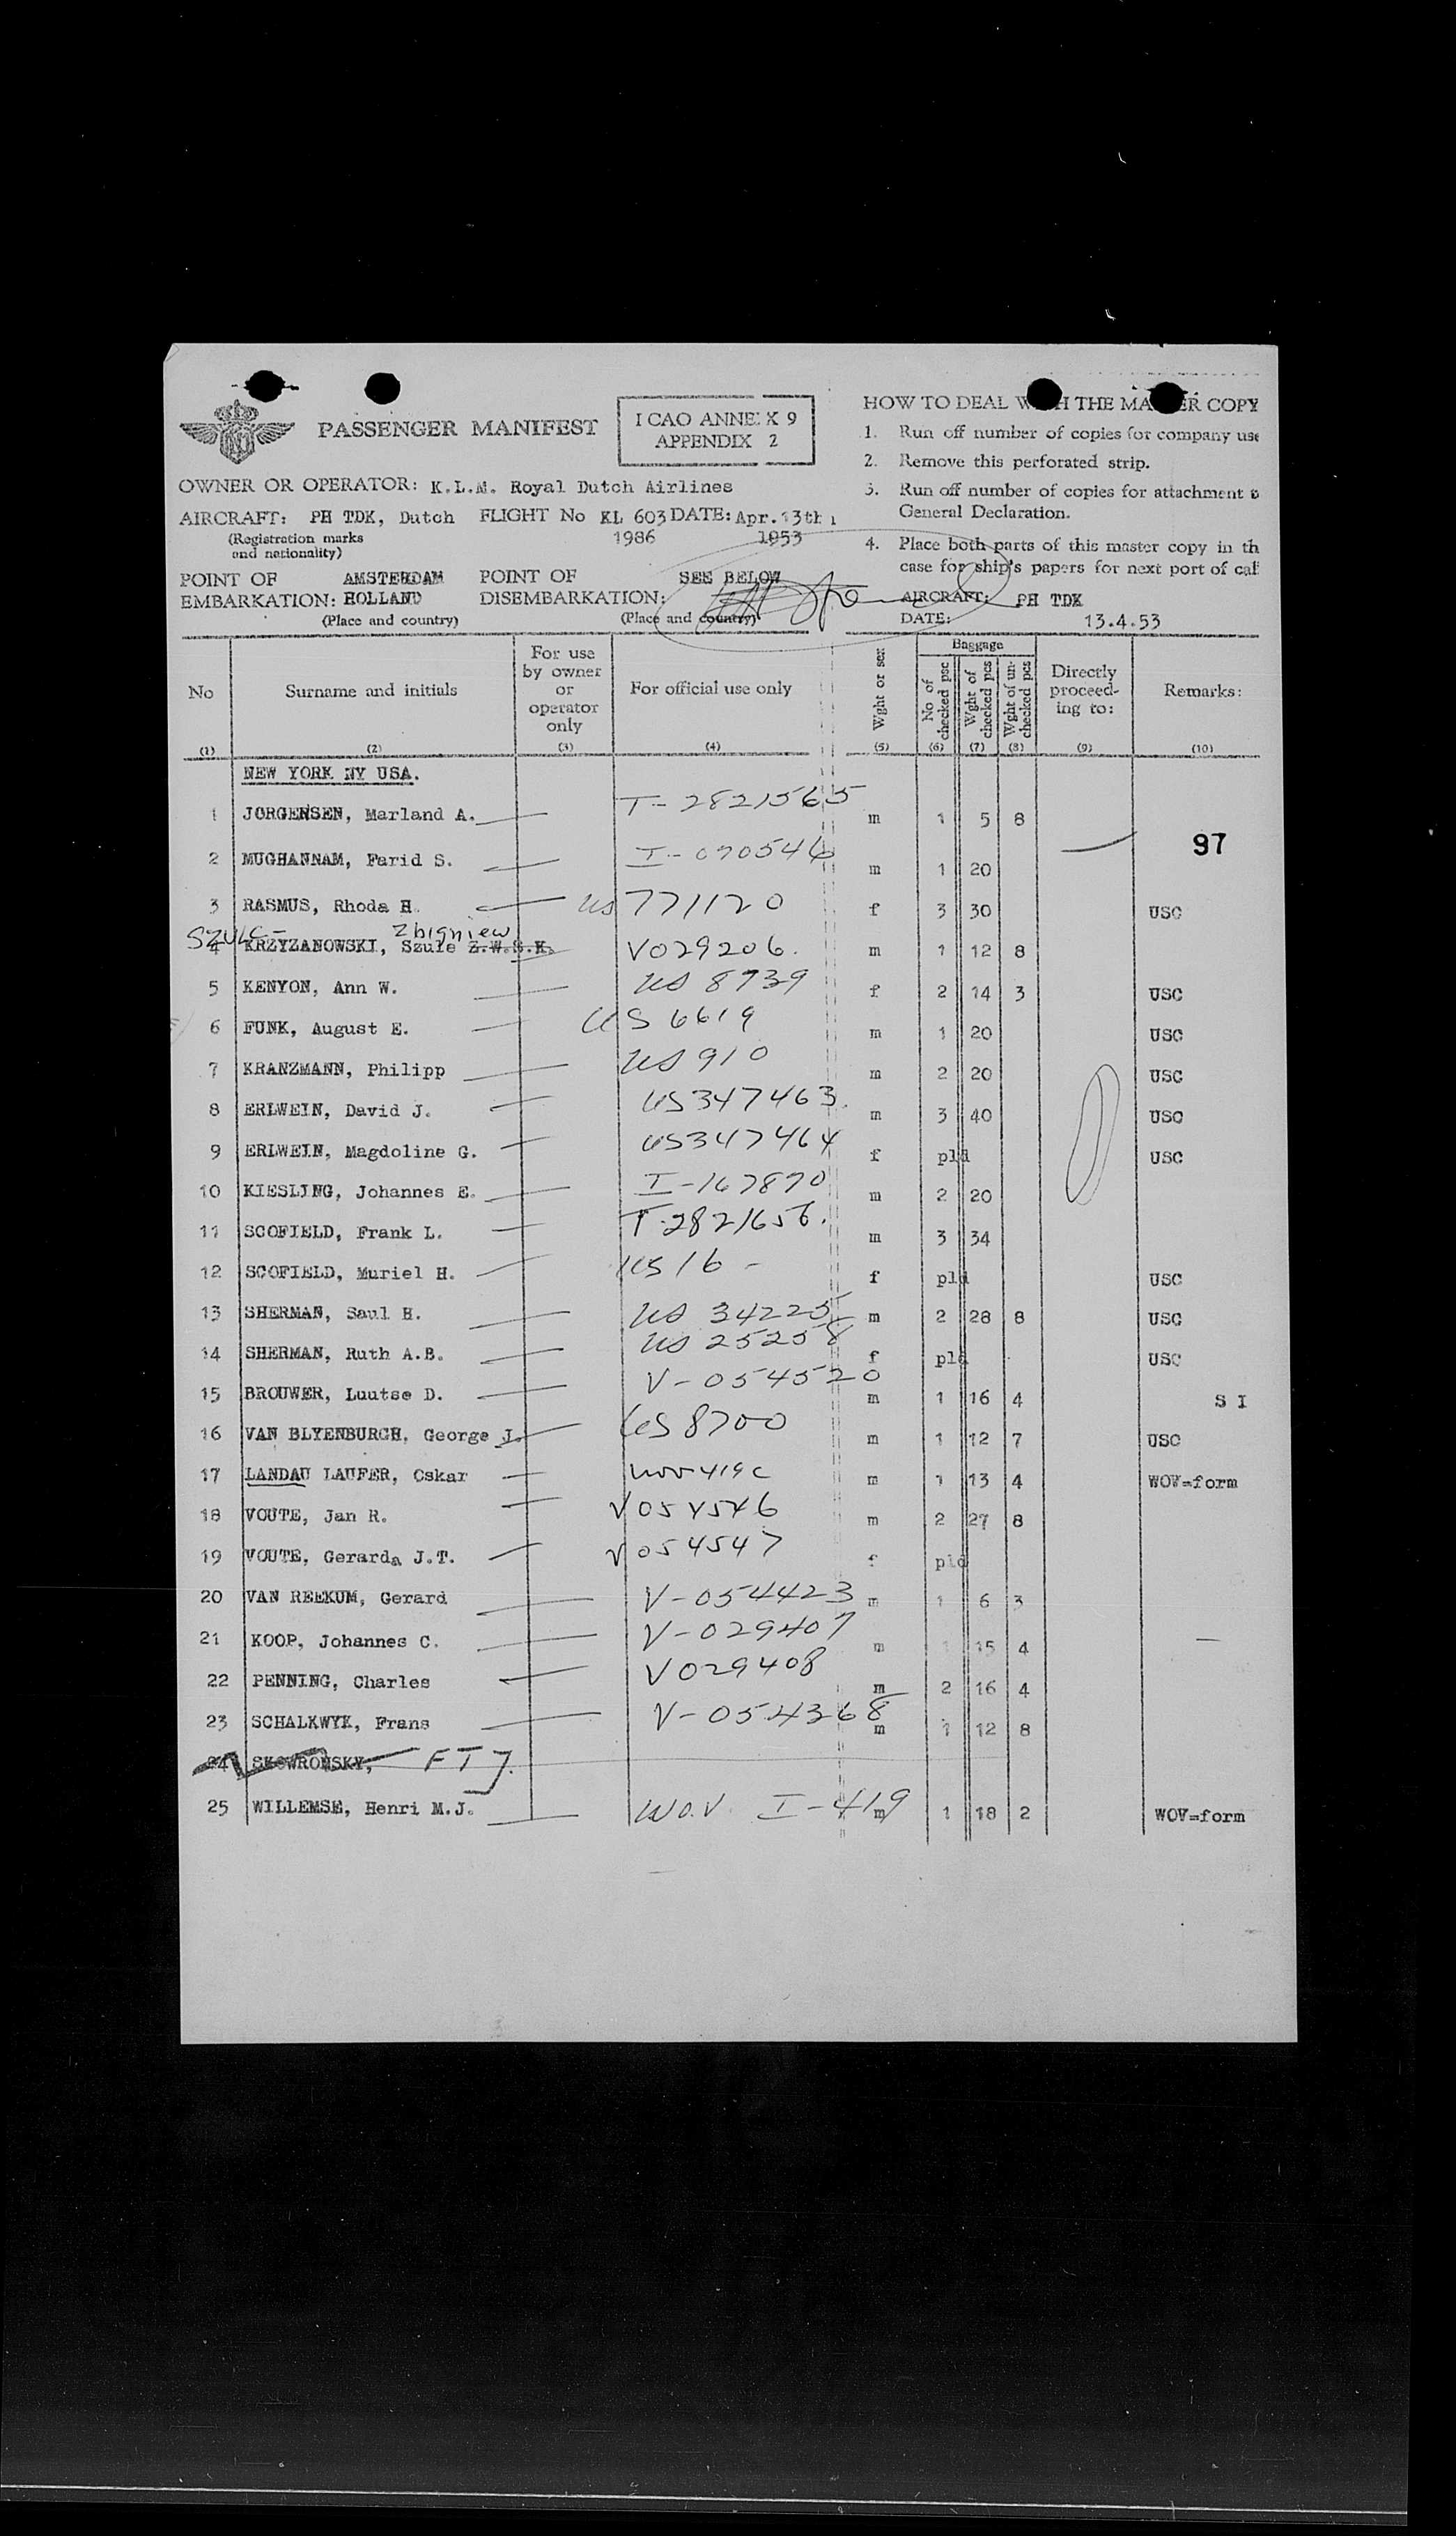 PASSENGER MANIFEST
I CAO ANNEX 9
APPENDIX 2
OWNER OR OPERATOR: K.L.M. Royal Dutch Airlines
AIRCRAFT: PH TDK, Dutch FLIGHT No KL 603 DATE: Apr. 13th
(Registration marks and nationality) 1986 1953
POINT OF EMBARKATION: AMSTERDAM HOLLAND
(Place and country)
POINT OF DISEMBARKATION: SEE BELOW
(Place and country)
HOW TO DEAL THE COPY
1. Run off number of copies for company use
2. Remove this perforated strip.
3. Run off number of copies for attachment
General Declaration.
4. Place both parts of this master copy in th
case for ship's papers for next port of cal
AIRCRAFT: PH TDK
DATE: 13.4.53
No Surname and initials For use by owner or operator only For official use only Wght or sex Baggage No of checked psc Wght of checked pcs Wght of un-checked pcs Directly proceed-ing to: Remarks:
(1) (2) (3) (4) (5) (6) (7) (8) (9) (10)
NEW YORK NY USA.
1 JORGENSEN, Marland A. T-2821565 m 1 5 8
97
2 MUGHANNAM, Farid S. I-070546 m 1 20
3 RASMUS, Rhoda H. US 771120 f 3 30 USC
SZULC- Zbigniew
4 KRZYZANOWSKI, Szule Z.W.S.K. V029206. m 1 12 8
5 KENYON, Ann W. US 8739 f 2 14 3 USC
6 FUNK, August E. US 6619 m 1 20 USC
7 KRANZMANN, Philipp US 910 m 2 20 USC
8 ERLWEIN, David J. US347463. m 3 40 USC
9 ERLWEIN, Magdoline G. US347464 f pld USC
10 KIESLING, Johannes E. I-167870 m 2 20
11 SCOFIELD, Frank L. T-2821656. m 3 34
12 SCOFIELD, Muriel H. US 16 - f pld USC
13 SHERMAN, Saul H. US 34225 m 2 28 8 USC
14 SHERMAN, Ruth A.B. US 25258 f pld USC
15 BROUWER, Luutse D. V-054520 m 1 16 4 S I
16 VAN BLYENBURGH, George J. US 8700 m 1 12 7 USC
17 LANDAU LAUFER, Oskar m 1 13 4 WOV=form
18 VOUTE, Jan R. V054546 m 2 27 8
19 VOUTE, Gerarda J.T. V054547 f pld
20 VAN REEKUM, Gerard V-054423 m 1 6 3
21 KOOP, Johannes C. V-029407 m 1 15 4
22 PENNING, Charles V029408 m 2 16 4
23 SCHALKWYK, Frans V-054368 m 1 12 8
24 SKOWRONSKY, FTJ.
25 WILLEMSE, Henri M.J. W.O.V. I-419 m 1 18 2 WOV=form